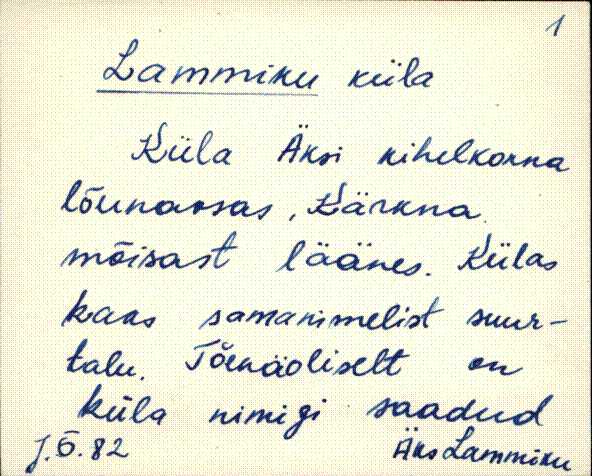 1
Lammiku küla
Küla Äksi kihelkonna
lõunaosas, Kärkna
mõisast läänes. Külas
kaks samanimelist suur-
talu. Tõenäoliselt on
küla nimigi saadud
J.Õ.82 Äks Lammiku